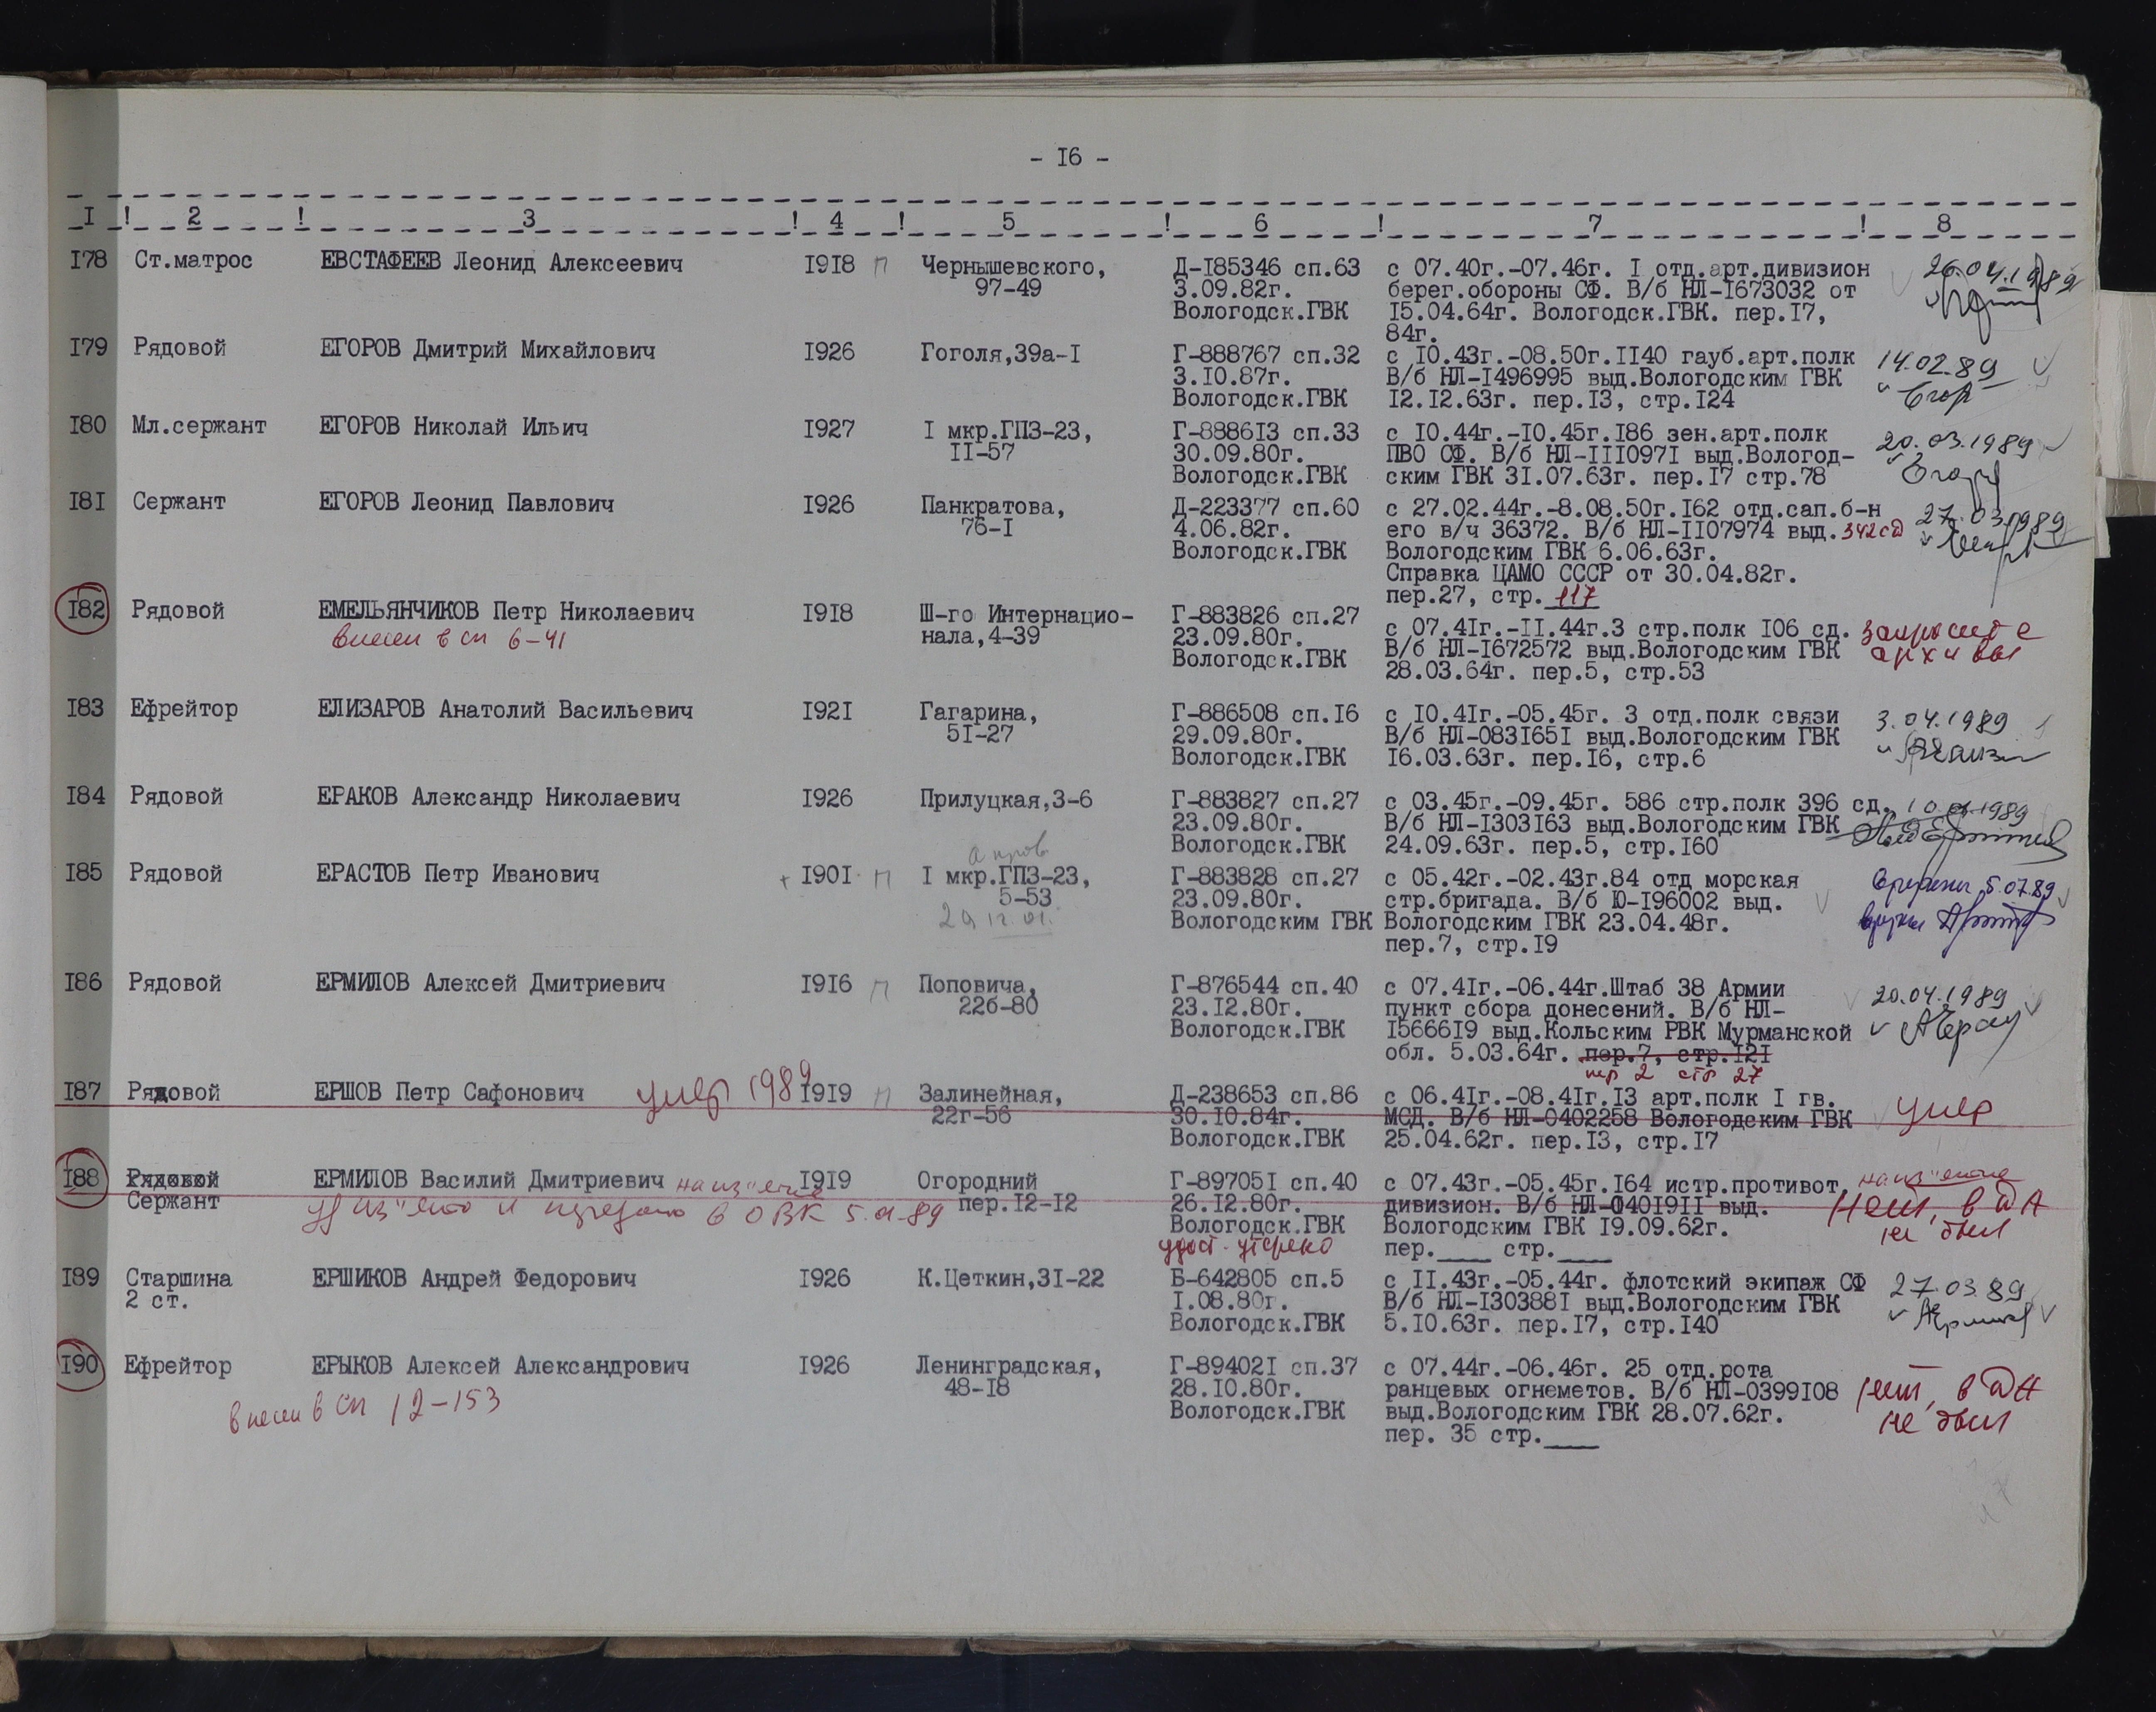 - I6 -
I ! 2 ! 3 ! 4 ! 5 ! 6 ! 7 ! 8
I78 Ст.матрос ЕВСТАФЕЕВ Леонид Алексеевич I9I8 П Чернышевского, Д-I85346 сп.63 с 07.40г.-07.46г. I отд.арт.дивизион 26.04.1989
97-49 3.09.82г. берег.обороны СФ. В/б НЛ-I673032 от
Вологодск.ГВК I5.04.64г. Вологодск.ГВК. пер.I7,
84г.
I79 Рядовой ЕГОРОВ Дмитрий Михайлович I926 Гоголя,39а-I Г-888767 сп.32 с I0.43г.-08.50г.II40 гауб.арт.полк 14.02.89
3.I0.87г. В/б НЛ-I496995 выд.Вологодским ГВК
Вологодск.ГВК I2.I2.63г. пер.I3, стр.I24
I80 Мл.сержант ЕГОРОВ Николай Ильич I927 I мкр.ГПЗ-23, Г-8886I3 сп.33 с I0.44г.-I0.45г.I86 зен.арт.полк 20.03.1989
II-57 30.09.80г. ПВО СФ. В/б НЛ-III097I выд.Вологод-
Вологодск.ГВК ским ГВК 3I.07.63г. пер.I7 стр.78
I8I Сержант ЕГОРОВ Леонид Павлович I926 Панкратова, Д-223377 сп.60 с 27.02.44г.-8.08.50г.I62 отд.сап.б-н 27.03.1989
76-I 4.06.82г. его в/ч 36372. В/б НЛ-II07974 выд. 342сд
Вологодск.ГВК Вологодским ГВК 6.06.63г.
Справка ЦАМО СССР от 30.04.82г.
пер.27, стр. 117
I82 Рядовой ЕМЕЛЬЯНЧИКОВ Петр Николаевич I9I8 Ш-го Интернацио- Г-883826 сп.27
внесен в сп 6-41 нала,4-39 23.09.80г. с 07.4Iг.-II.44г.3 стр.полк I06 сд. запросите
Вологодск.ГВК В/б НЛ-I672572 выд.Вологодским ГВК архивы
28.03.64г. пер.5, стр.53
I83 Ефрейтор ЕЛИЗАРОВ Анатолий Васильевич I92I Гагарина, Г-886508 сп.I6 с I0.4Iг.-05.45г. 3 отд.полк связи 3.04.1989
5I-27 29.09.80г. В/б НЛ-083I65I выд.Вологодским ГВК
Вологодск.ГВК I6.03.63г. пер.I6, стр.6
I84 Рядовой ЕРАКОВ Александр Николаевич I926 Прилуцкая,3-6 Г-883827 сп.27 с 03.45г.-09.45г. 586 стр.полк 396 сд.
23.09.80г. В/б НЛ-I303I63 выд.Вологодским ГВК
Вологодск.ГВК 24.09.63г. пер.5, стр.I60
I85 Рядовой ЕРАСТОВ Петр Иванович + I90I П I мкр.ГПЗ-23, Г-883828 сп.27 с 05.42г.-02.43г.84 отд морская 5.07.89
5-53 23.09.80г. стр.бригада. В/б Ю-I96002 выд.
Вологодским ГВК Вологодским ГВК 23.04.48г.
пер.7, стр.I9
I86 Рядовой ЕРМИЛОВ Алексей Дмитриевич I9I6 П Поповича, Г-876544 сп.40 с 07.4Iг.-06.44г.Штаб 38 Армии 20.04.1989
22б-80 23.I2.80г. пункт сбора донесений. В/б НЛ-
Вологодск.ГВК I5666I9 выд.Кольским РВК Мурманской
обл. 5.03.64г. пер.7, стр.I2I
пер 2 стр 27
I87 Рядовой ЕРШОВ Петр Сафонович умер 1989 I9I9 П Залинейная, Д-238653 сп.86 с 06.4Iг.-08.4Iг.I3 арт.полк I гв. умер
22г-56 30.I0.84г. МСД. В/б НЛ-0402258 Вологодским ГВК
Вологодск.ГВК 25.04.62г. пер.I3, стр.I7
I88 Рядовой ЕРМИЛОВ Василий Дмитриевич на из"ятие I9I9 Огородний Г-89705I сп.40 с 07.43г.-05.45г.I64 истр.противот. на из"ятие
Сержант пер.I2-I2 26.I2.80г. дивизион. В/б НЛ-040I9II выд. нет, в ДА
Вологодск.ГВК Вологодским ГВК I9.09.62г. не был
удост. утеряно пер.____ стр.____
I89 Старшина ЕРШИКОВ Андрей Федорович I926 К.Цеткин,3I-22 Б-642805 сп.5 с II.43г.-05.44г. флотский экипаж СФ 27.03.89
2 ст. I.08.80г. В/б НЛ-I30388I выд.Вологодским ГВК
Вологодск.ГВК 5.I0.63г. пер.I7, стр.I40
I90 Ефрейтор ЕРЫКОВ Алексей Александрович I926 Ленинградская, Г-89402I сп.37 с 07.44г.-06.46г. 25 отд.рота
48-I8 28.I0.80г. ранцевых огнеметов. В/б НЛ-0399I08 нет, в ДА
внесен в сп 12-153 Вологодск.ГВК выд.Вологодским ГВК 28.07.62г. не был
пер. 35 стр.____